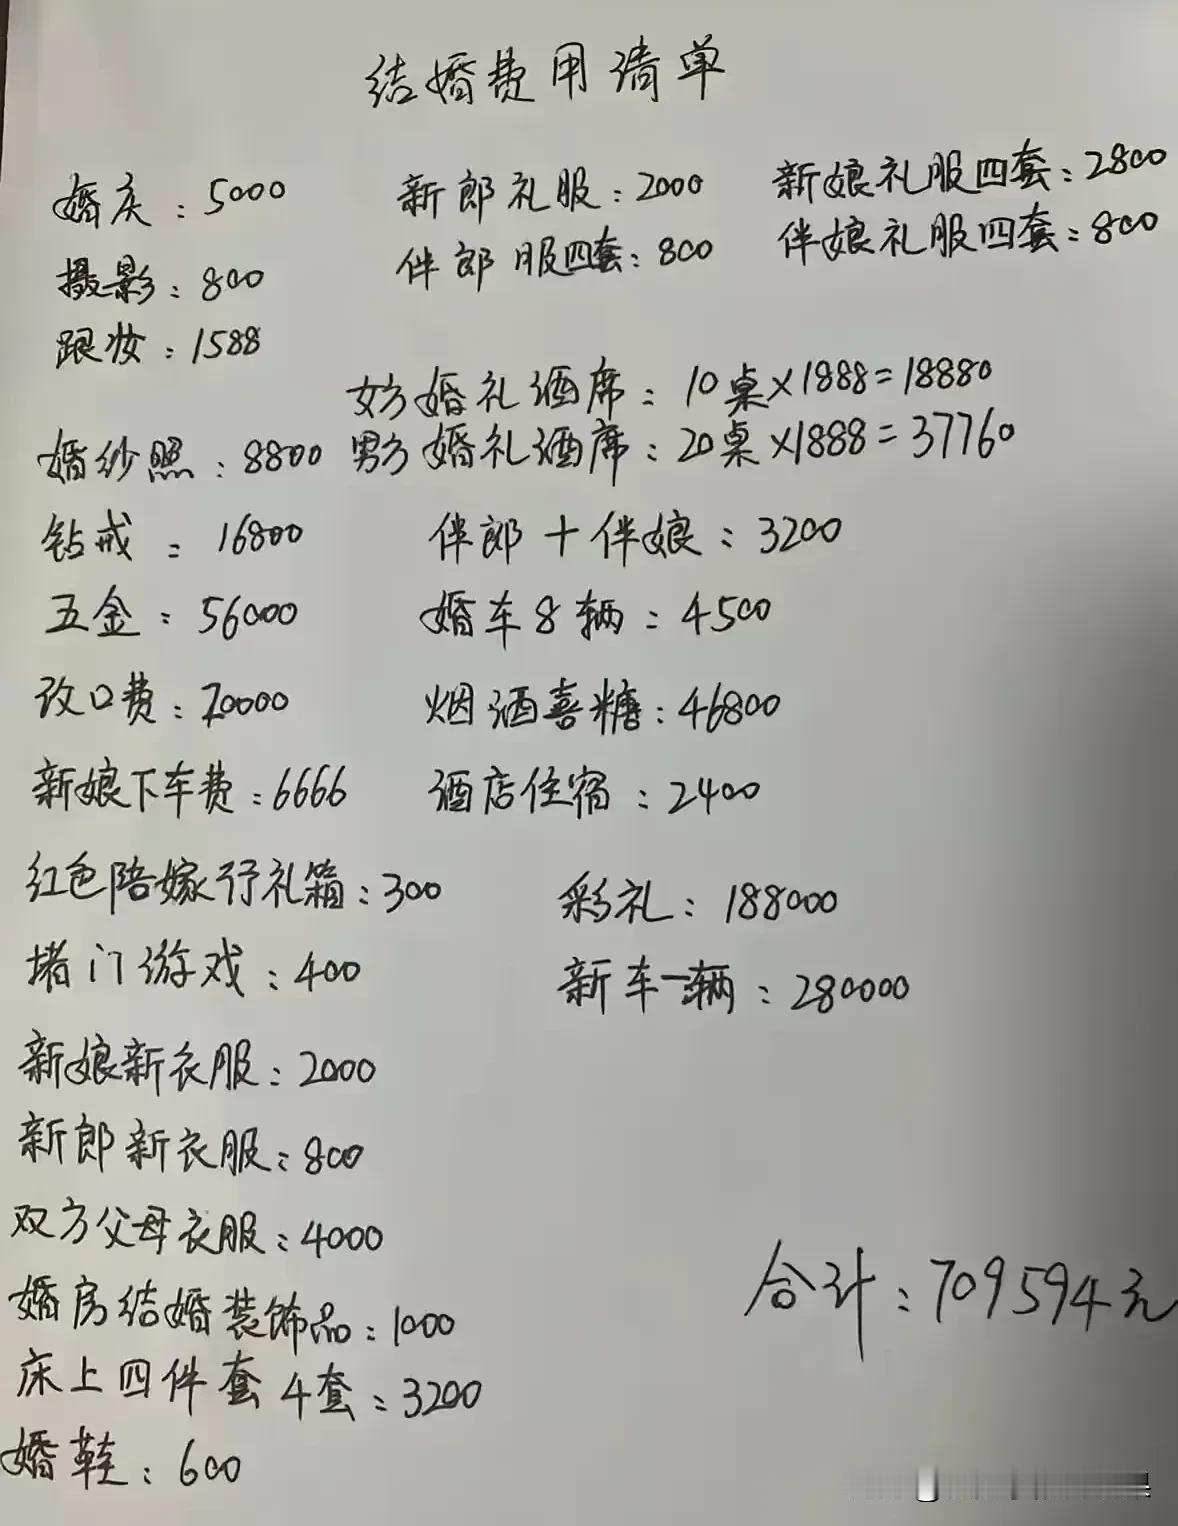 结婚费用清单
婚庆：5000
新郎礼服：2000
新娘礼服四套：2800
摄影：800
伴郎服四套：800
伴娘礼服四套：800
跟妆：1588
女方婚礼酒席：10桌×1888=18880
婚纱照：8800
男方婚礼酒席：20桌×1888=37760
钻戒：16800
伴郎+伴娘：3200
五金：56000
婚车8辆：4500
改口费：20000
烟酒喜糖：46800
新娘下车费：6666
酒店住宿：2400
红色陪嫁行礼箱：300
彩礼：188000
堵门游戏：400
新车一辆：280000
新娘新衣服：2000
新郎新衣服：800
双方父母衣服：4000
婚房结婚装饰品：1000
合计：709594元
床上四件套4套：3200
婚鞋：600